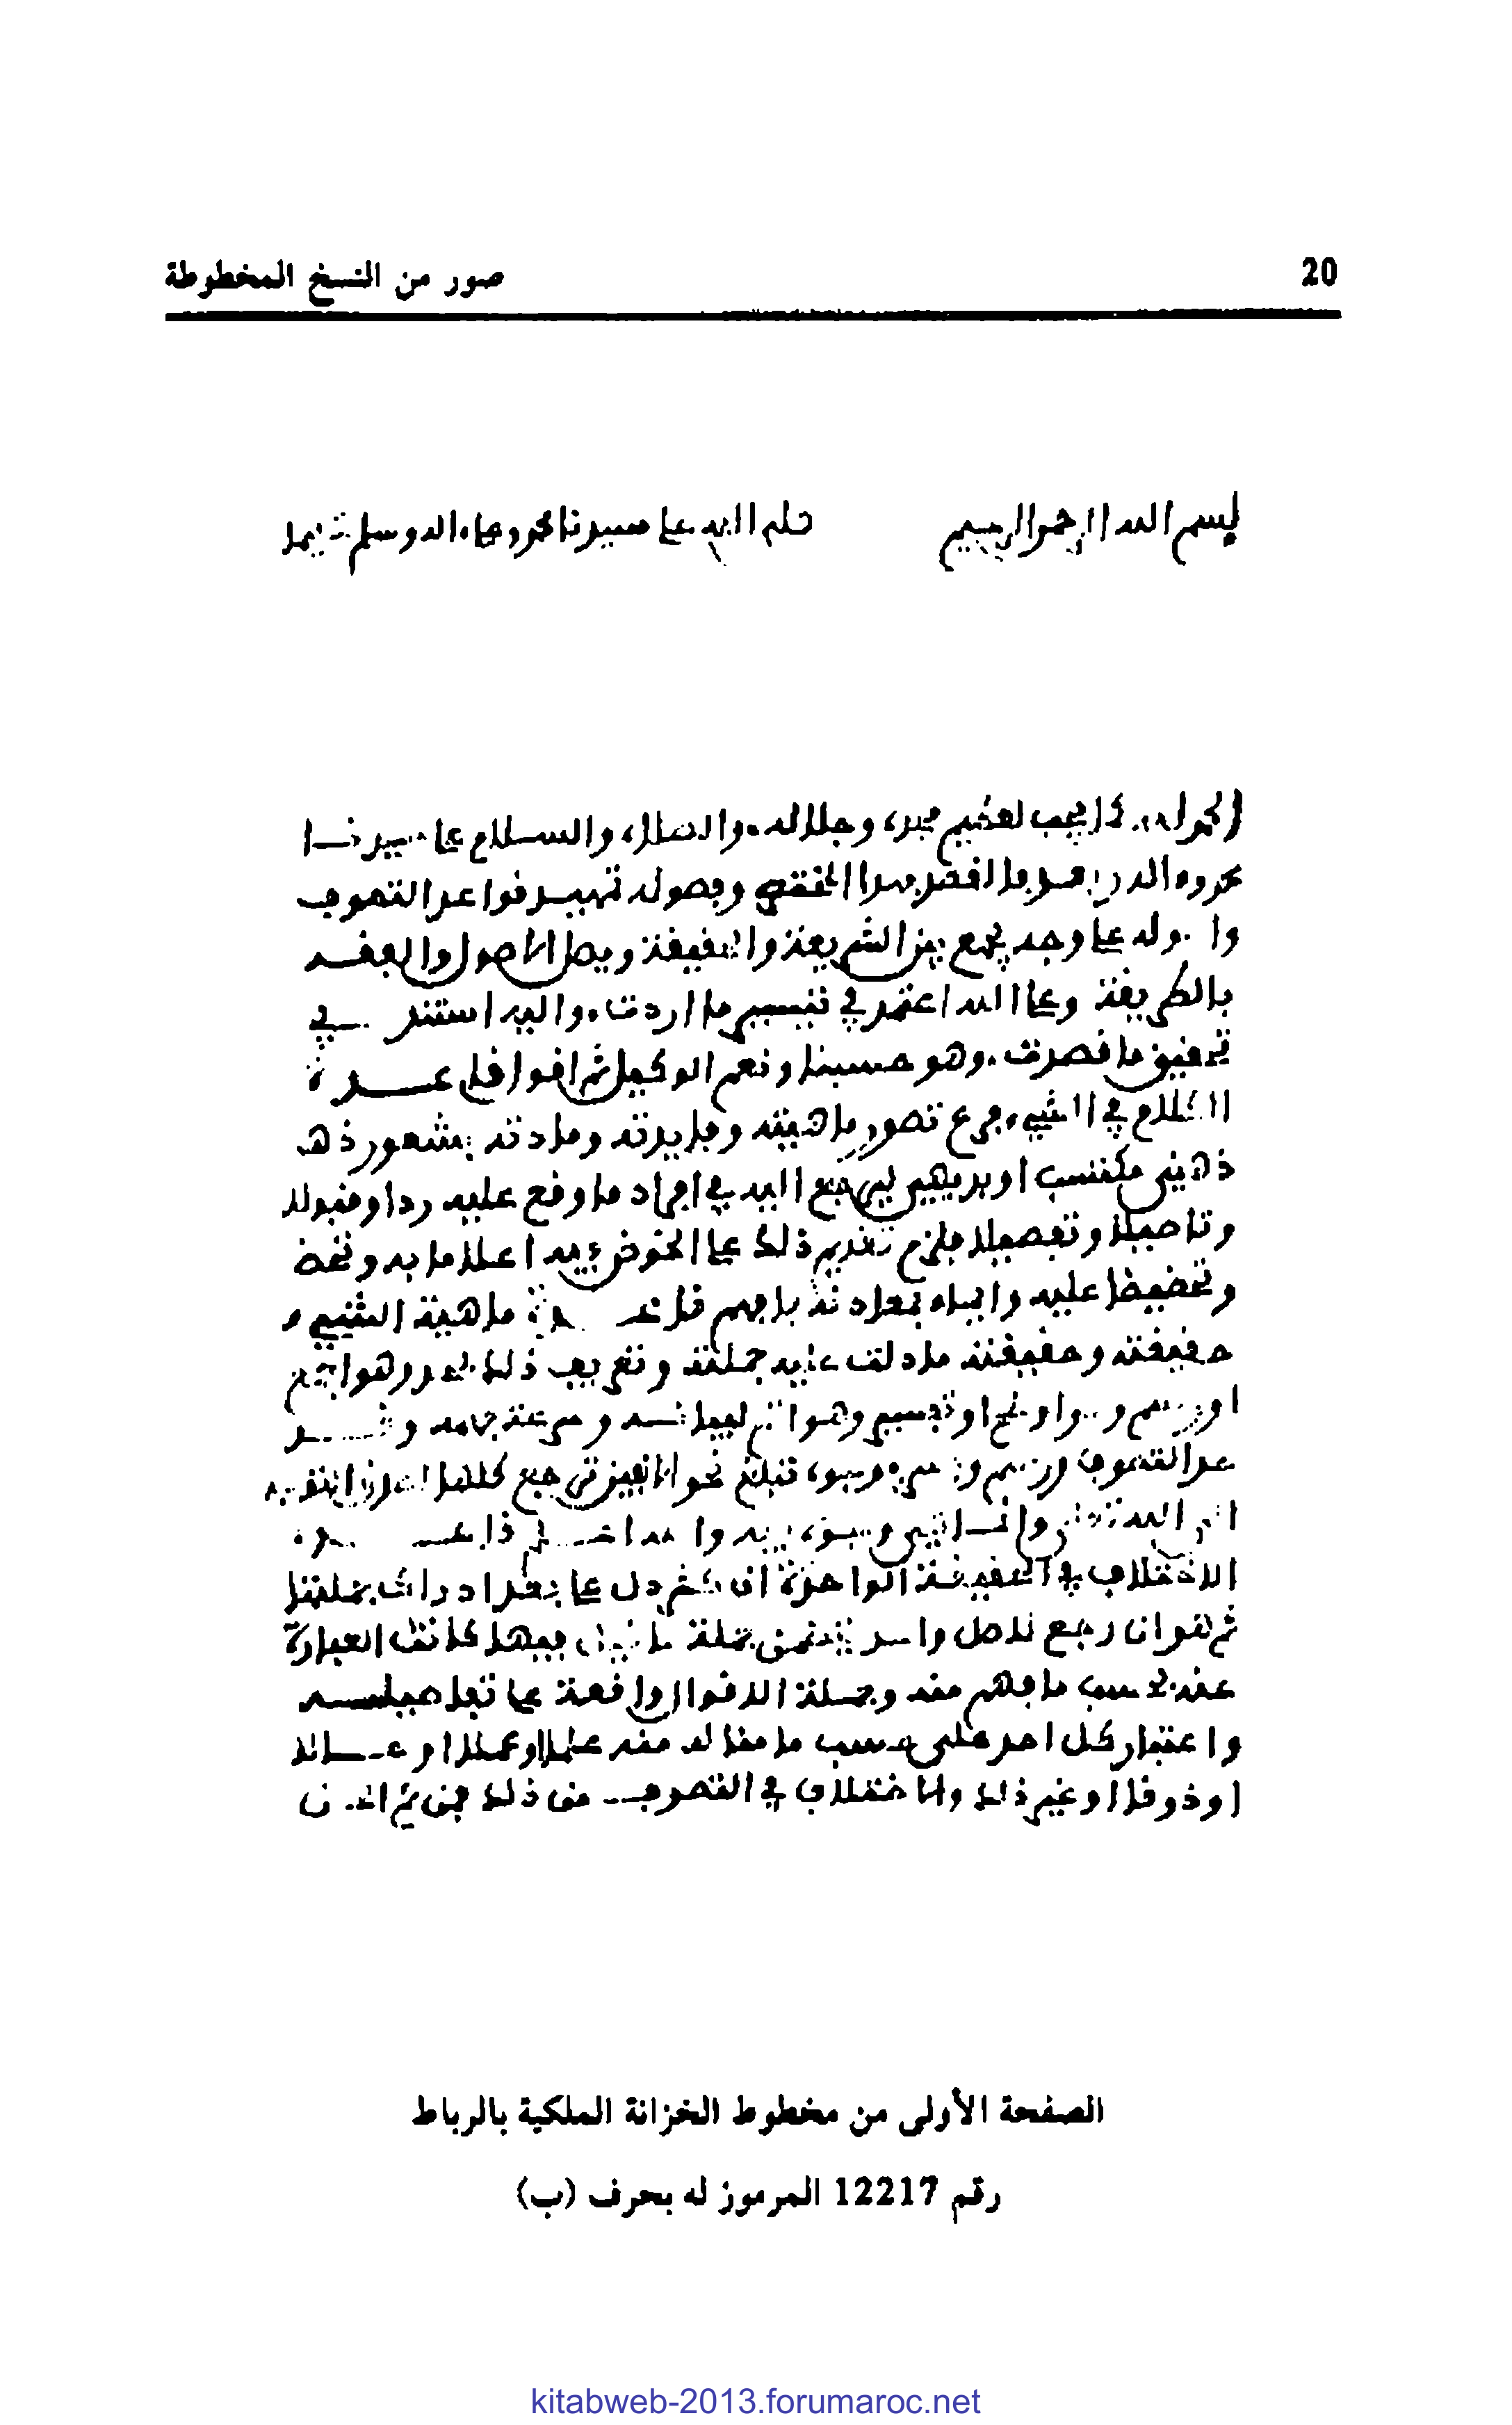 20
صور من النسخ المخطوطة
بسم الله الرحمن الرحيم صلى الله على سيدنا محمد وعلى اله وسلم تسليما
الحمد لله كما يجب لعظيم مجده وجلاله والصلاة والسلام على سيدنا
محمد واله وبعد فالقصد بهذا المختصر وفصوله تمهيد قواعد التصوف
واصوله على وجه يجمع بين الشريعة والحقيقة ويصل الاصول والفقه
بالطريقة وعلى الله اعتمد في تيسير ما اردت واليه استند في
تحقيق ما قصدت وهو حسبنا ونعم الوكيل ثم اقول قاعدة
الكلام في الشيء فرع تصور ماهيته وفايدته ومادته بشعور ذه
ذهني مكتسب او بديهي ليرجع اليه في افراد ما وقع عليه ردا وقبولا
وتاصيلا وتفصيلا فلزم تقديم ذلك على الخوض فيه اعلاما به وتحض
وتحضيضا عليه وايماء لمادته فافهم قاعدة ماهية الشيء
حقيقته وحقيقته ما دلت عليه جملته وتعريف ذلك بحد وهو اجمع
او برسم وهو اوضح او تفسير وهو اتم لبيانه وسرعة فهمه وقد
حد التصوف ورسم وفسر بوجوه تبلغ نحو الالفين ترجع كلها لصدق التوجه
الى الله تعالى وانما هي وجوه فيه والله اعلم قاعدة
الاختلاف في الحقيقة الواحدة ان كثر دل على بعد ادراك جملتها
ثم هو ان رجع لاصل واحد يتضمن جملة ما قيل فيها كانت العبارة
عنه بحسب ما فهم منه وجملة الاقوال واقعة على تفاصيله
واعتبار كل احد على حسب ما مثاله منه علما او عملا او حالا
او ذوقا او غير ذلك والاختلاف في التصوف من ذلك فمن ثم
الصفحة الأولى من مخطوط الخزانة الملكية بالرباط
رقم 12217 المرموز له بحرف (ب)
kitabweb-2013.forumaroc.net